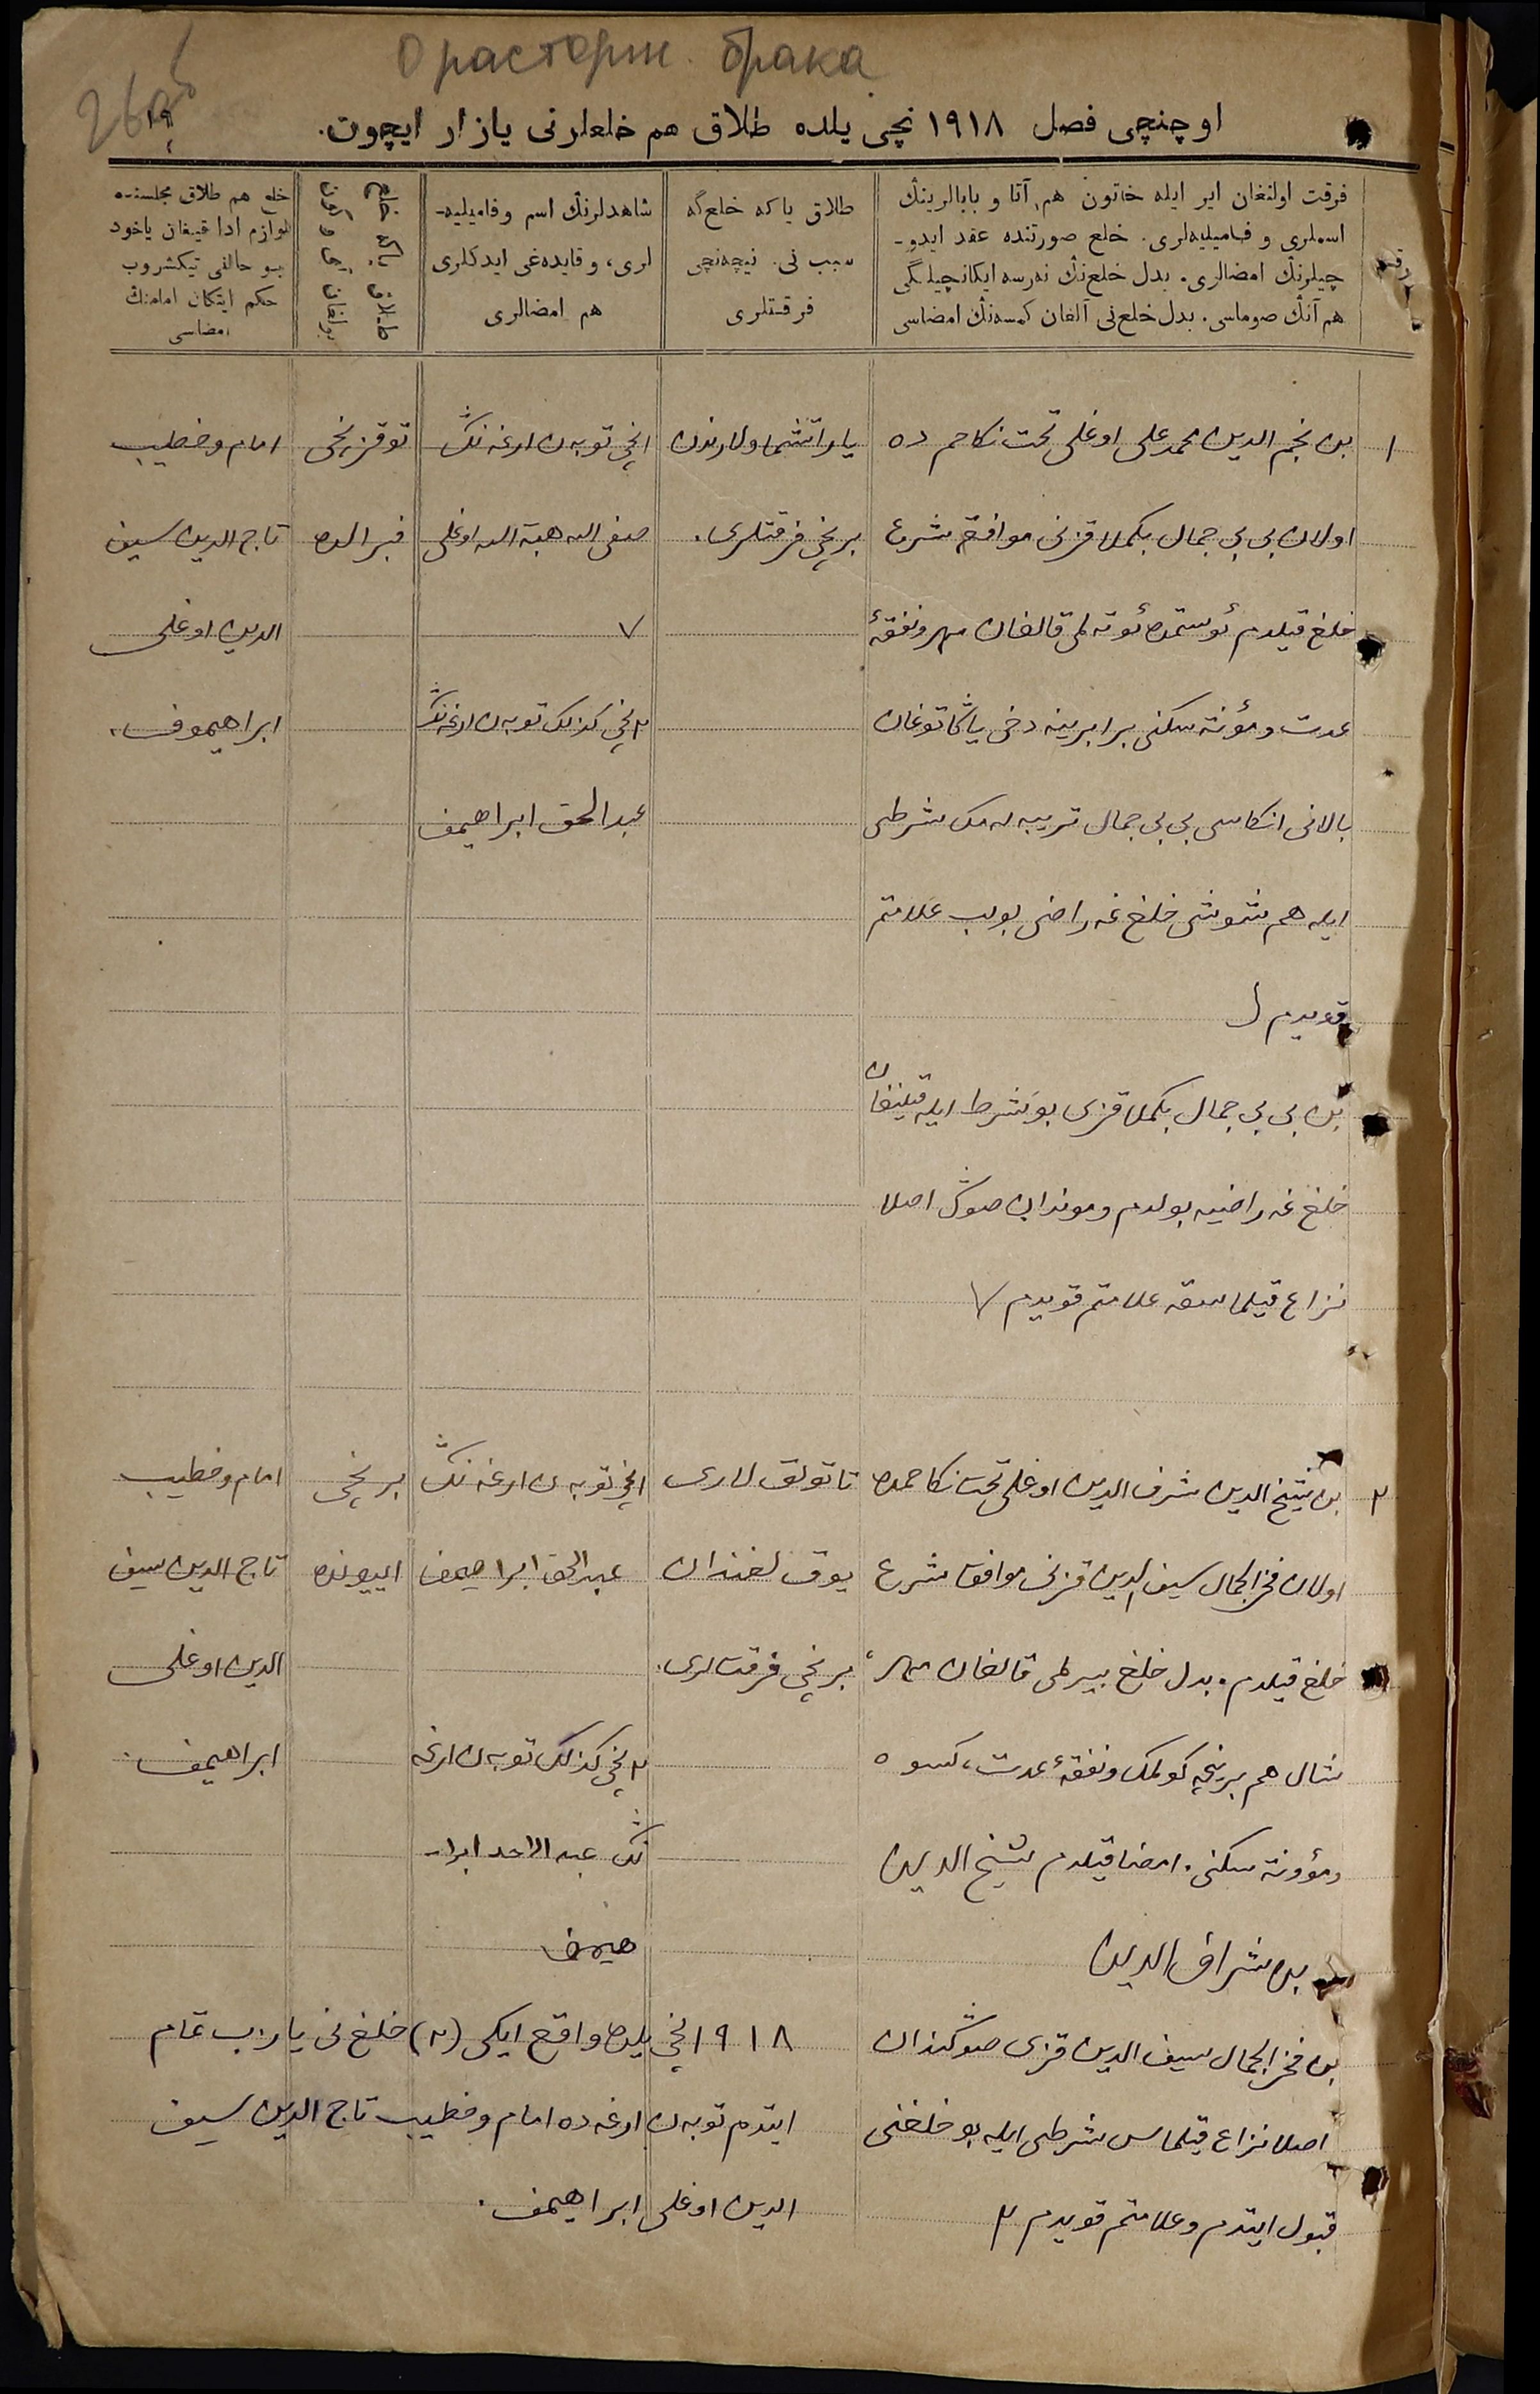 О расторж. брака
اوچنچی فصل ۱۹۱۸ نچی یلده طلاق هم خلعلرنی یازار ایچون.
فرقت اولنغان ایر ایله خاتون هم آتا و بابالرینڭ
اسملری و فامیلیه‌لری. خلع صورتنده عقد ایدو-
چیلرنڭ امضالری. بدل خلع‌نڭ نه‌رسه ایکانچیلگی
هم آنڭ صوماسی. بدل خلع‌نی آلغان کمسه‌نڭ امضاسی
طلاق یا که خلع‌گه
سبب نی. نیچه‌نچی
فرقتلری
شاهدلرنڭ اسم و فامیلیه-
لری، و قایده‌غی ایدکلری
هم امضالری
خلع هم طلاق مجلسنده
لوازم ادا قیلغان یاخود
بو حالنی تیکشروب
حکم ایتکان امامنڭ
امضاسی
۱ بن نجم الدین محمدعلی اوغلی تحت نکاحم ده
اولان بی بی جمال بکملا قزنی موافق شرع
خلع قیلدم ئوستمده ئوته لمی قالغان مهر ونفقهٔ
عدت ومؤنة سکنی برابرینه دخی یاڭا توغان
بالانی انکاسی بی بی جمال تربیه لەمک شرطی
ایله هم شوشی خلع غه راضی بولب علامتم
قویدم
بن بی بی جمال بکملا قزی بو شرط ایله قیلنغان
خلع غه راضیه بولدم وموندان صوڭ اصلا
نزاع قیلماسقه علامتم قویدم ۷
یاراتشماولارندن
برنچی فرقتلری.
۱نچی توبه‌ن ارغه نڭ
صفی الله هبة الله اوغلی
۷
۲نچی کذلک توبه‌ن ارغه‌نڭ
عبدالحق ابراهیمف
توقزنچی
فبرالده
امام وخطیب
تاج الدین سیف
الدین اوغلی
ابراهیموف.
۲ بن شیخ الدین شرف الدین اوغلی تحت نکاحمده
اولان فخرالجمال سیف الدین قزنی موافق شرع
خلع قیلدم. بدل خلع بیرلمی قالغان مهر،
شال هم برنچه کولمک ونفقهٔ عدت، کسوه
ومؤونة سکنی. امضا قیلدم شیخ الدین
بن شراف الدین
بن فخرالجمال سیف الدین قزی صوڭندان
اصلا نزاع قیلماس شرطی ایله بو خلعنی
قبول ایتدم وعلامتم قویدم ۲
تاتولق لاری
یوق لغندان
برنچی فرقت لری.
۱نچی توبه‌ن ارغه نڭ
عبدالحق ابراهیمف
۲نچی کذلک توبه‌ن ارغه
نڭ عبدالاحد ابرا-
هیمف
برنچی
اییونده
امام وخطیب
تاج الدین سیف
الدین اوغلی
ابراهیمف.
۱۹۱۸نچی یلده واقع ایکی (۲) خلع نی یازب تمام
ایتدم توبه‌ن ارغه ده امام وخطیب تاج الدین سیف
الدین اوغلی ابراهیمف.